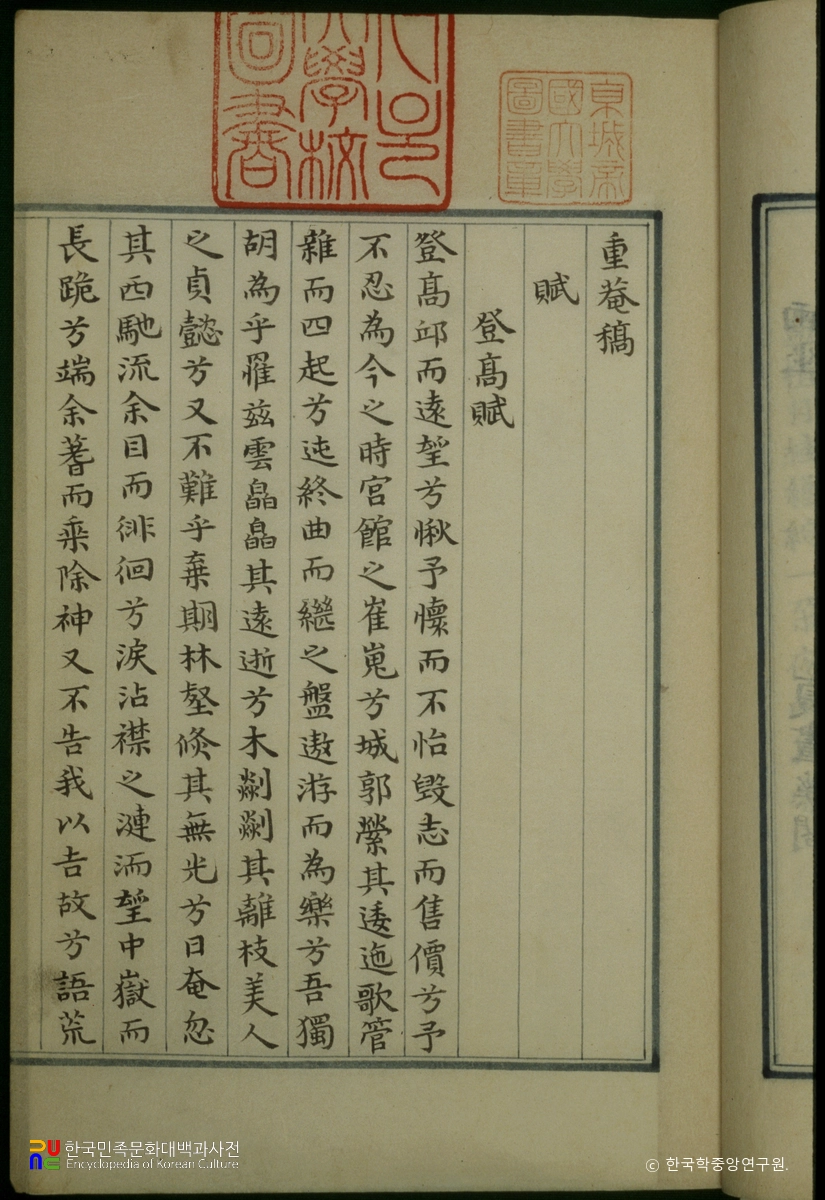 重菴稿
賦
登高賦
登髙邱而遠望兮愀予懷而不怡毁志而售價兮予
不忍為今之時宮館之崔嵬兮城郭縈其逶迤歌管
雜而四起兮迄終曲而繼之盤遨游而為樂兮吾獨
胡為乎罹玆雲皛皛其遠逝兮木䓹䓹其離枝美人
之貞懿兮又不難乎棄期林壑倐其無光兮日奄忽
其西馳流余目而徘徊兮涙沾襟之漣洏望中嶽而
長跪兮端余蓍而乘除神又不告我以吉故兮語荒
東城帝國大學圖書章
大學校圖書
한국민족문화대백과사전
Encyclopedia of Korean Culture
© 한국학중앙연구원.